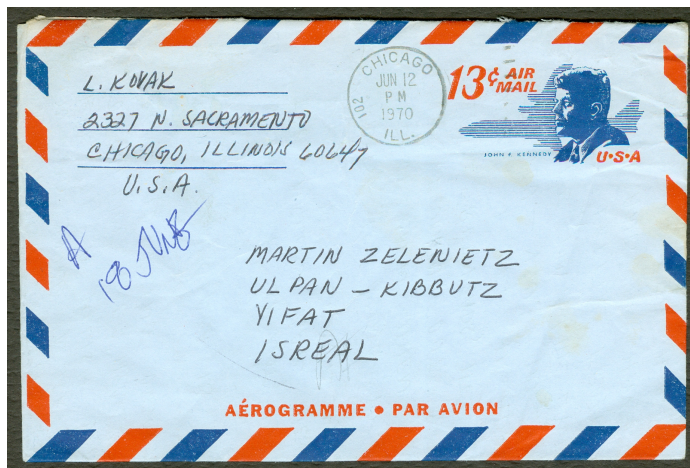 L. KOVAK
2327 N. SACRAMENTO
CHICAGO, ILLINOIS 60647
U.S.A.
CHICAGO
JUN 12
PM
1970
ILL.
102
13¢ AIR MAIL
JOHN F. KENNEDY
U·S·A
A
18 JUNE
MARTIN ZELENIETZ
ULPAN - KIBBUTZ
YIFAT
ISREAL
AÉROGRAMME • PAR AVION